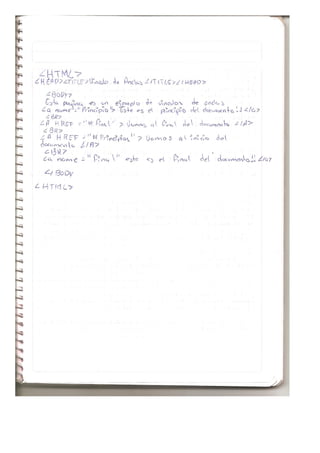 <HTML>
<HEAD><TITLE>Vinculo de Anclas</TITLE></HEAD>
<BODY>
Esta pagina es un ejemplo de vinculos de anclas
<a name="Principio"> Este es el principio del documento!!</a>
<BR>
<A HREF="#Final"> Vamos al final del documento </A>
<BR>
<A HREF="#Principio"> Vamos al inicio del
documento </A>
<BR>
<a name="Final" este es el final del documento!!</a>
</BODY
<HTML>